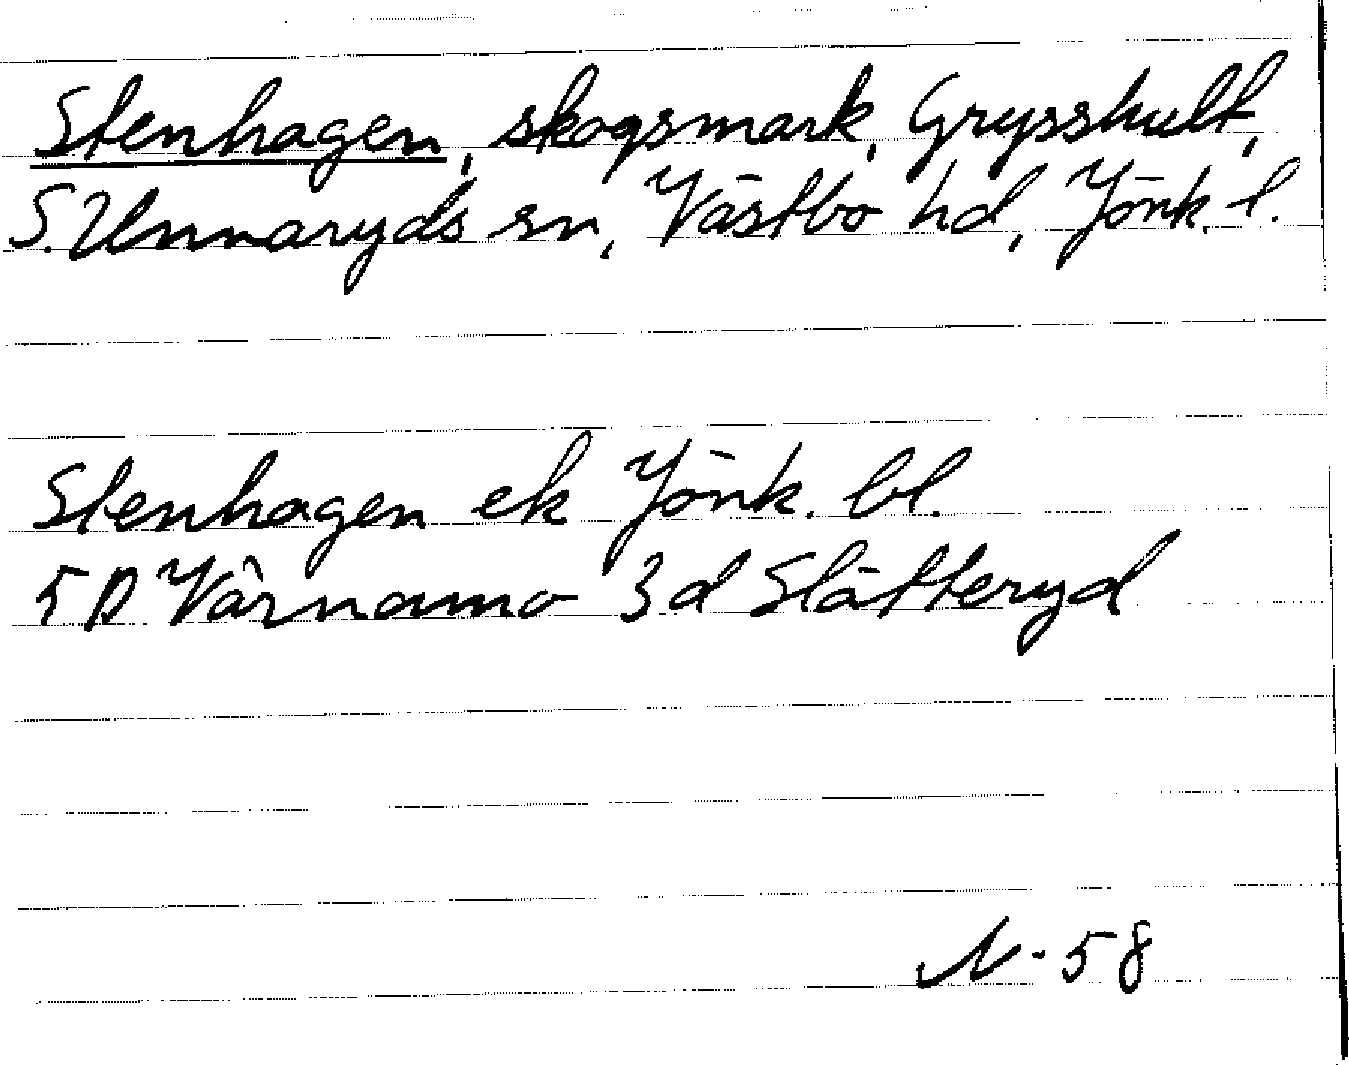 Stenhagen, skogsmark, Grysshult,
S. Unnaryds sn, Västbo hd, Jönk. l.
Stenhagen ek Jönk. bl.
5D Värnamo 3d Slätteryd
N-58